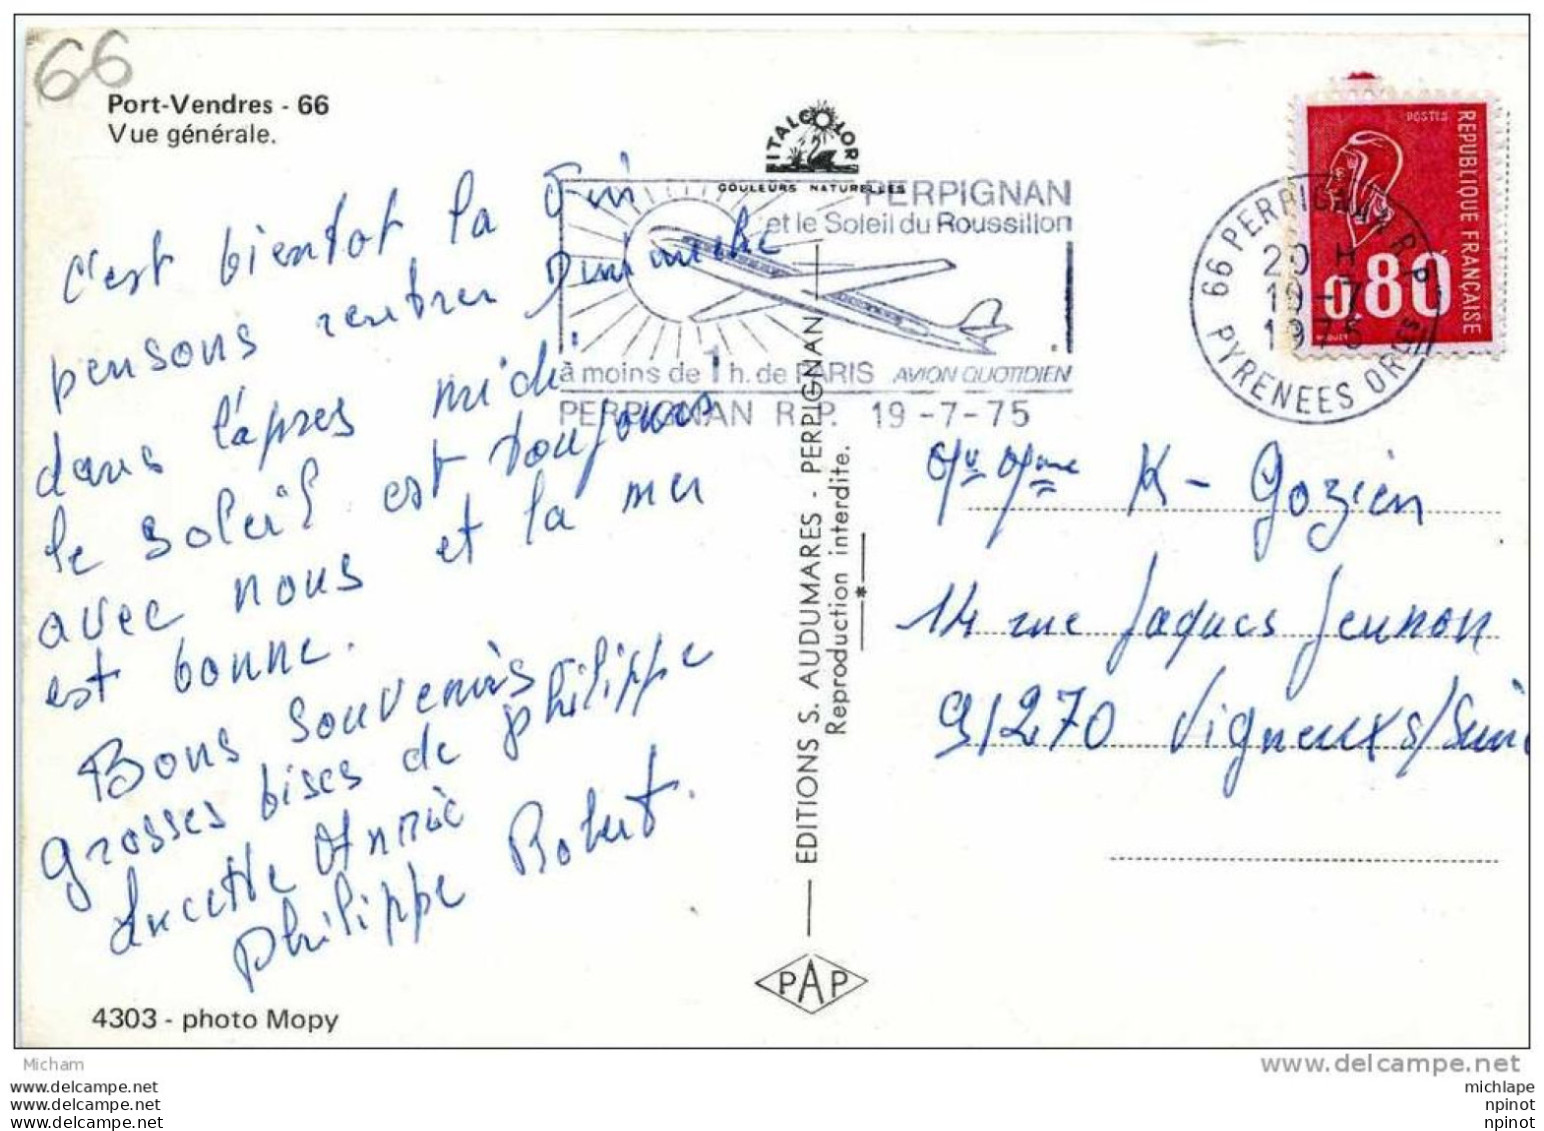 66
Port-Vendres - 66
Vue générale.
c'est bientot la fin
pensons rentrer Dimanche
dans l'apres midi
le soleil est toujours
avec nous et la mer
est bonne.
Bons souvenirs
grosses bises de philippe
Lucette Annie
philippe Robert.
4303 - photo Mopy
FITALCOLOR
COULEURS NATURELLES
PERPIGNAN
et le Soleil du Roussillon
à moins de 1 h. de PARIS AVION QUOTIDIEN
PERPIGNAN R.P. 19-7-75
EDITIONS S. AUDUMARES - PERPIGNAN
Reproduction interdite.
PAP
POSTES
REPUBLIQUE FRANÇAISE
0.80
66 PERPIGNAN R.P.
20 H
19-7
1975
PYRENEES ORLES
K - Gozien
14 rue Jaques Jeunon
91270 Vigneux s/Seine
Micham
www.delcampe.net
www.delcampe.net
www.delcampe.net
www.delcampe.net
michlape
npinot
npinot